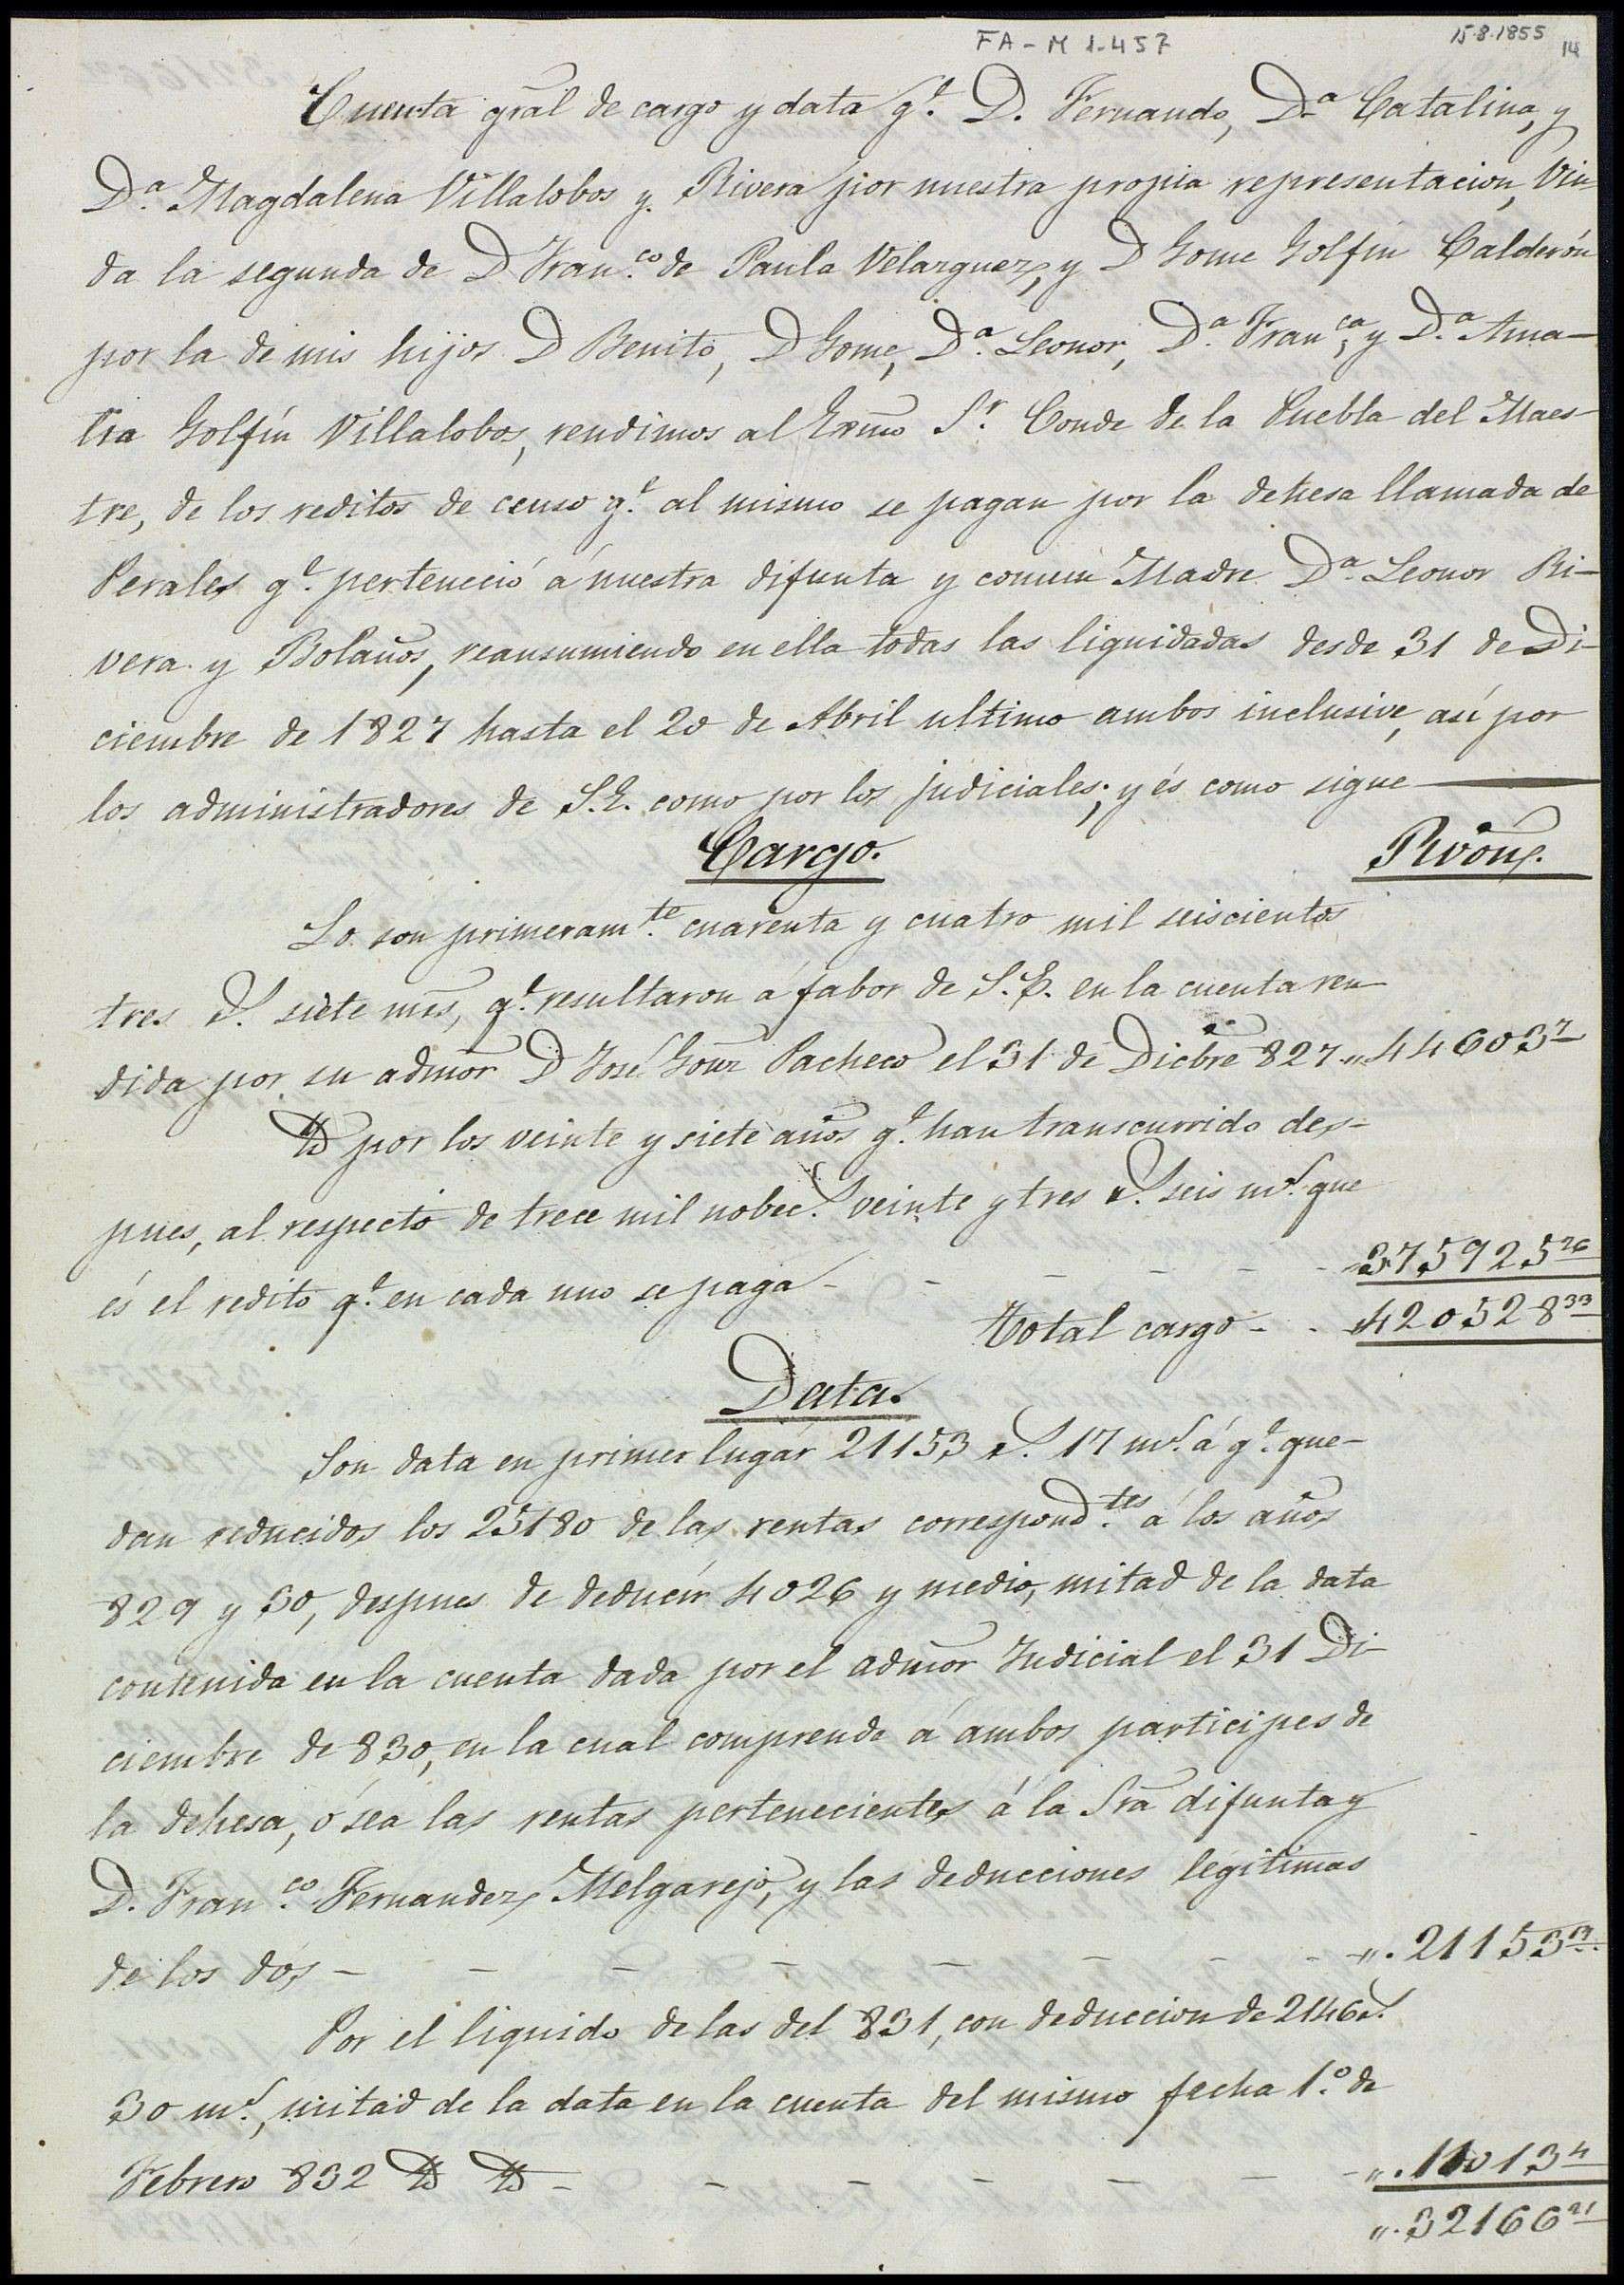 FA-M 1.457
15-8-1855
14
Cuenta gral de cargo y data q.e D. Fernando, D.a Catalina, y
D.a Magdalena Villalobos y Rivera por nuestra propia representacion, Viu
da la segunda de D Fran.co de Paula Velazquez, y D Gome Golfin Calderón
por la de mis hijos D Benito, D Gome, D.a Leonor, D.a Fran.ca y D.a Ama-
lia Golfín Villalobos, rendimos al Exmo S.r Conde de la Puebla del Maes-
tre, de los reditos de censo q.e al mismo se pagan por la dehesa llamada de
Perales q.e perteneció á nuestra difunta y comun Madre D.a Leonor Ri-
vera y Bolaños, reansumiendo en ella todas las liquidadas desde 31 de Di-
ciembre de 1827 hasta el 20 de Abril ultimo ambos inclusive, así por
los administradores de S.E. como por los judiciales; y és como sigue
Cargo. Rvon.
Lo son primeram.te cuarenta y cuatro mil seiscientos
tres r.s siete mrs, q.e resultaron á fabor de S.E. en la cuenta ren
dida por su admor D José Gonz Pacheco el 31 de Dicbre 827 „ 44603 7
Id por los veinte y siete años q.e han transcurrido des-
pues, al respecto de trece mil nobec.s veinte y tres r.s seis m.s que
és el redito q.e en cada uno se paga - - - - - - 375925 26
Total cargo - - 420528 33
Data.
Son data en primer lugár 21153 r.s 17 m.s á q.e que-
dan reducidos los 25180 de las rentas correspond.tes á los años
829 y 30, despues de deducir 4026 y medio, mitad de la data
contenida en la cuenta dada por el admor Judicial el 31 Di-
ciembre de 830, en la cual comprende á ambos participes de
la dehesa, ó sea las rentas pertenecientes á la Sra difunta y
D. Fran.co Fernandez Melgarejo, y las deducciones legitimas
de los dos - - - - - - - - „. 21153 17
Por el liquido de las del 831, con deduccion de 2146 r.s
30 m.s, mitad de la data en la cuenta del mismo fecha 1.º de
Febrero 832 Id Id - - - - - - „. 11013 4
„. 32166 21